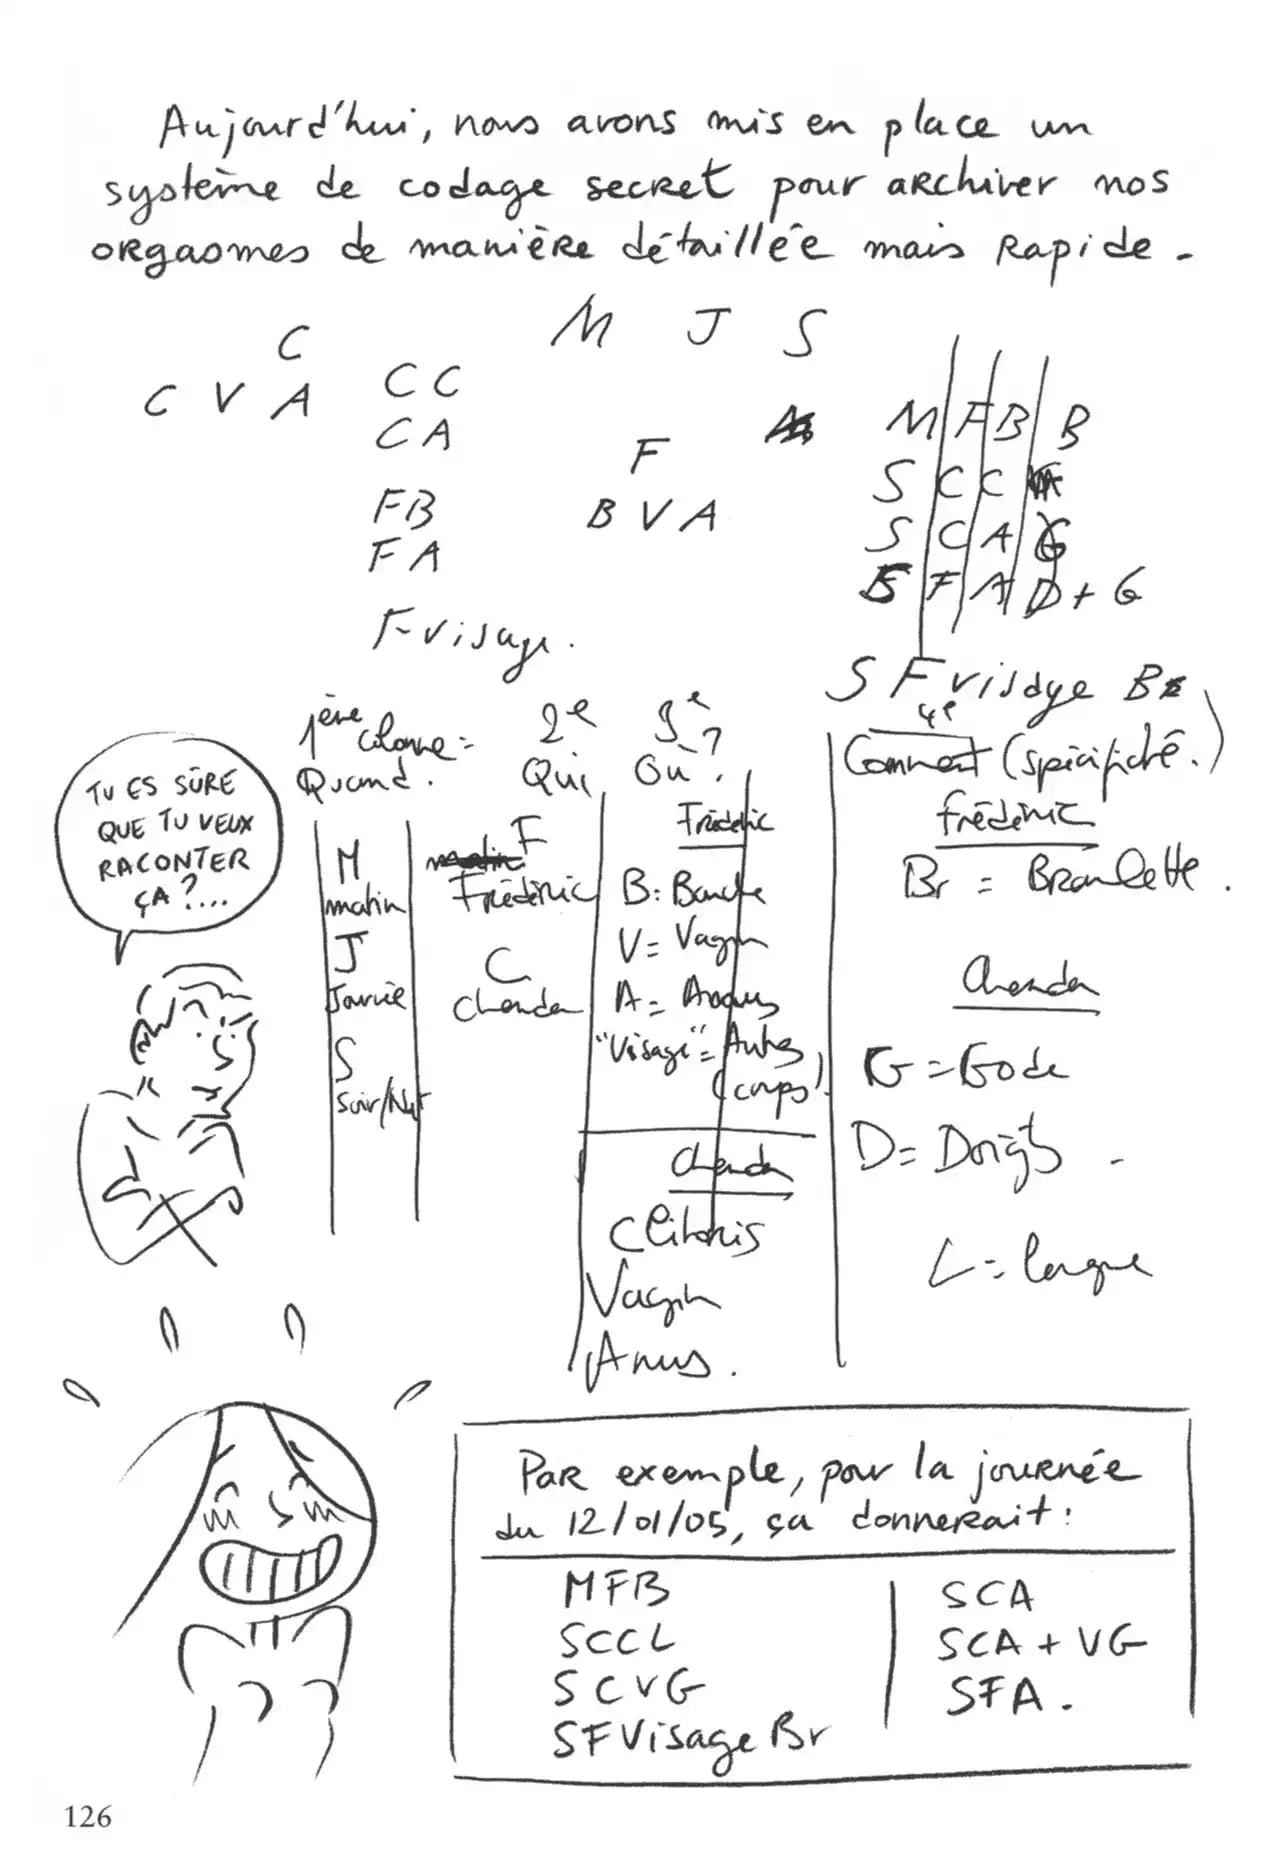 Aujourd'hui, nous avons mis en place un
système de codage secret pour archiver nos
orgasmes de manière détaillée mais rapide.
M J S
C
C V A
C C
C A
F B
F A
F-visage.
F
B V A
M F B B
S C C
S C A G
F A D + G
S F visage Br
1ère colonne =
Quand.
2e
Qui
3e
Où ?
4e
Comment (spécificité.)
TU ES SÛRE
QUE TU VEUX
RACONTER
ÇA ?...
M
matin
J
Journée
S
Soir/Nuit
F
Frédéric
C
Chenda
Frédéric
B: Bouche
V= Vagin
A= Anus
"Visage"= Autres
(corps)
Chenda
Clitoris
Vagin
Anus.
Frédéric
Br = Branlette.
Chenda
G = Gode
D= Doigts
L= langue
Par exemple, pour la journée
du 12/01/05, ça donnerait :
MFB
SCCL
SCVG
SFVisage Br
SCA
SCA + VG
SFA.
126